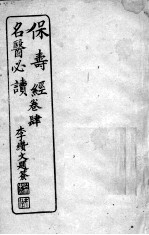 保壽經卷肆
名醫必讀
李纘文題簽